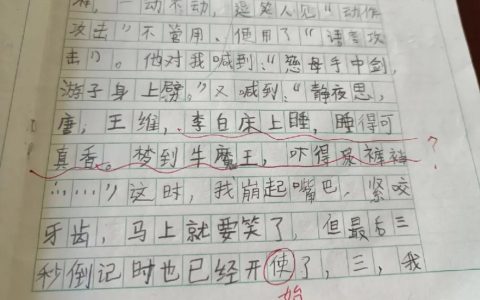 一动不动，逗笑人见“动作
攻击”不管用，使用了“语言攻
击”。他对我喊到：“慈母手中剑，
游子身上劈。”又喊到：“静夜思，
唐，王维，李白床上睡，睡得可
真香。梦到牛魔王，吓得尿裤裤
……”这时，我崩起嘴巴，紧咬
牙齿，马上就要笑了，但最后三
秒倒记时也已经开使了，三，我
?
始